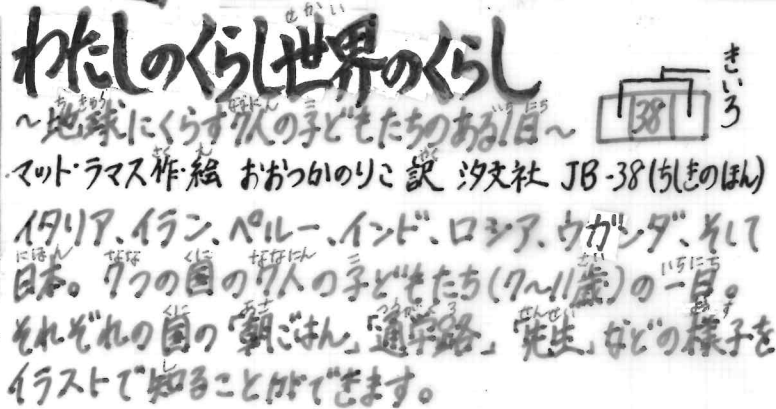 わたしのくらし世界のくらし
～地球にくらす7人の子どもたちのある1日～
38
きいろ
マット・ラマス作・絵 おおつかのりこ 訳 汐文社 JB-38(ちしきのほん)
イタリア、イラン、ペルー、インド、ロシア、ウガンダ、そして
日本。7つの国の7人の子どもたち(7～11歳)の一日。
それぞれの国の「朝ごはん」「通学路」「先生」などの様子を
イラストで知ることができます。